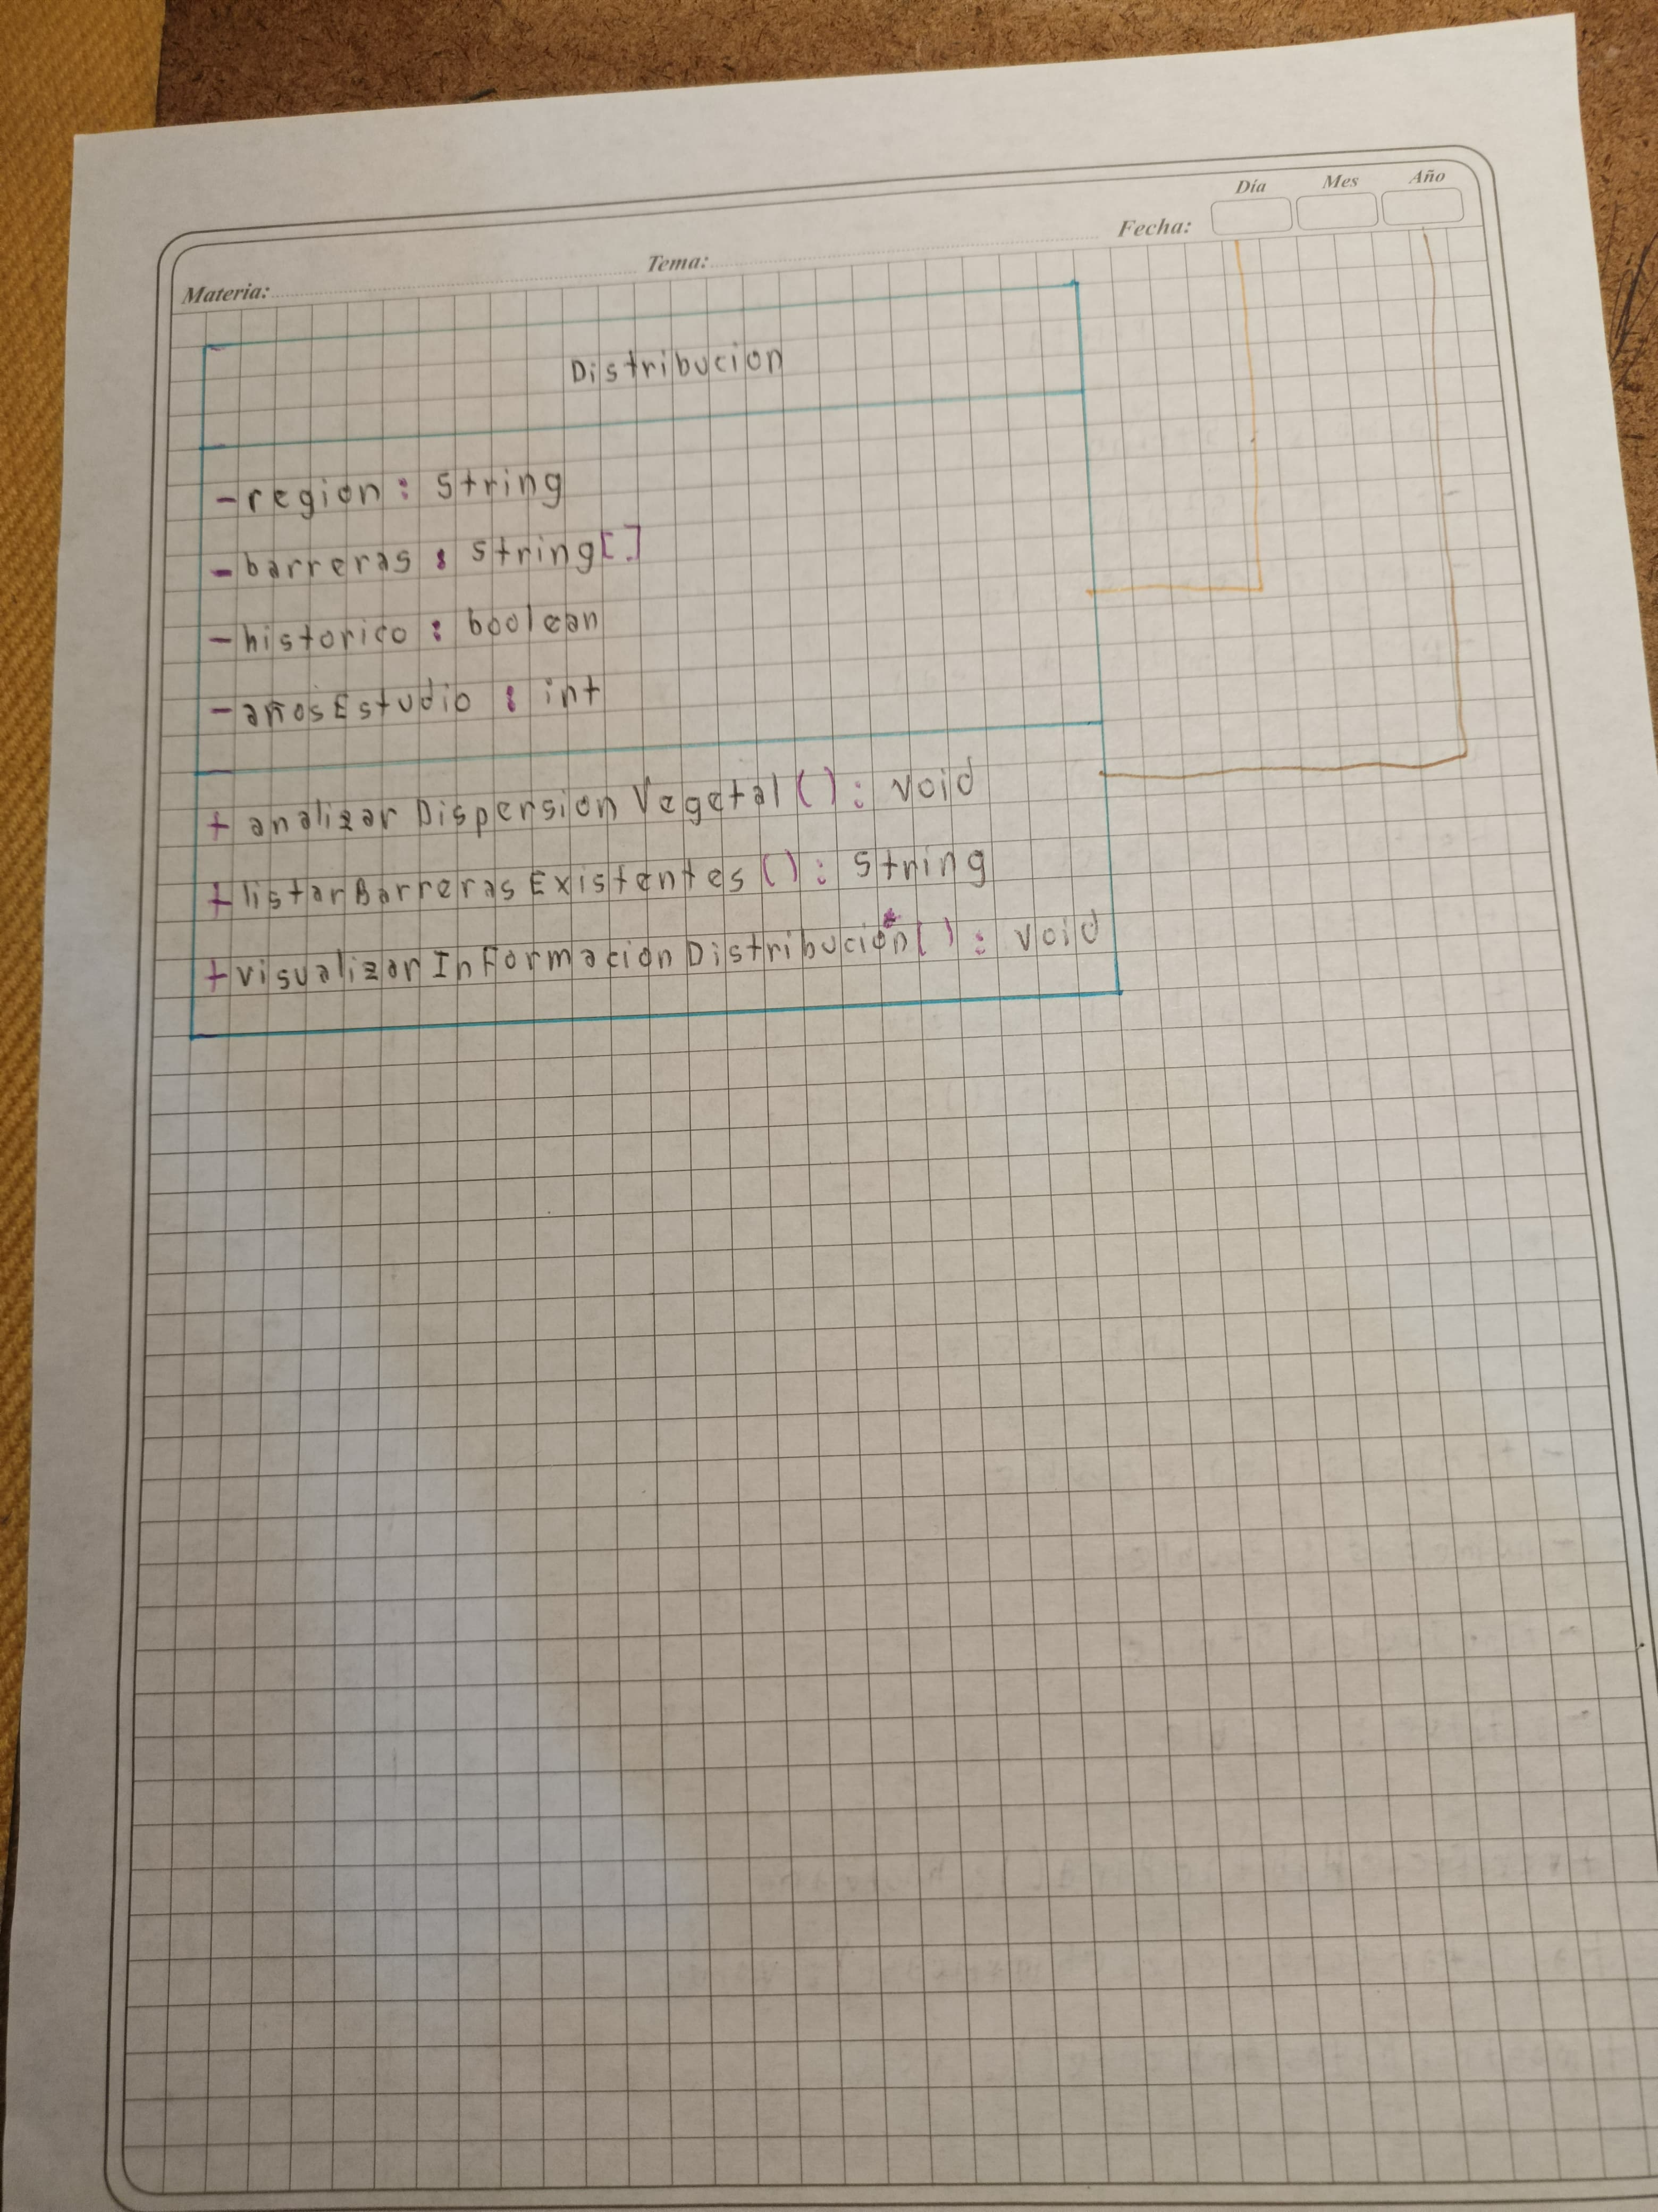 Día Mes Año
Fecha:
Materia: Tema:
Distribucion
- region : String
- barreras : string[]
- historico : boolean
- añosEstudio : int
+ analizar Dispersion Vegetal ( ) : void
+ listarBarrerasExistentes ( ) : String
+ visualizarInformacionDistribucion ( ) : void